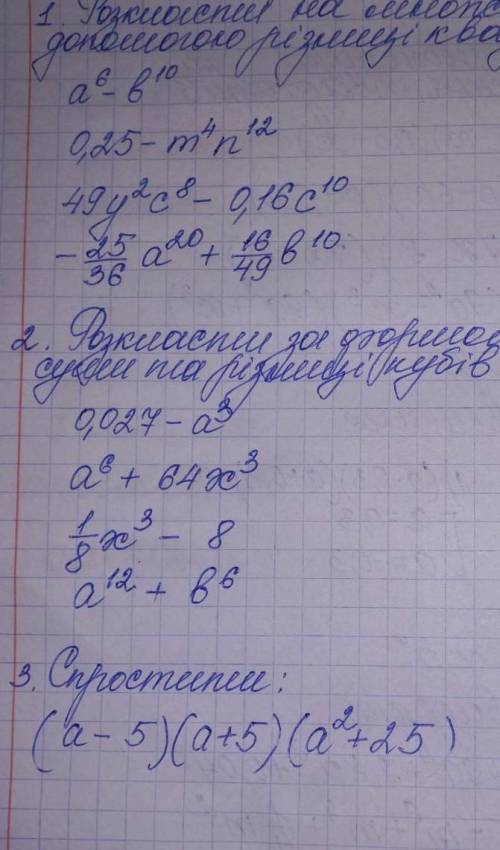 1. Розкласти на
допомогою різниці
a⁶ - b¹⁰
0,25 - m⁴n¹²
49y²c⁸ - 0,16c¹⁰
- 25/36 a²⁰ + 16/49 b¹⁰.
2. Розкласти за
суми та різниці кубів
0,027 - a³
a⁶ + 64x³
1/8 x³ - 8
a¹² + b⁶
3. Спростити:
(a - 5)(a + 5)(a² + 25)